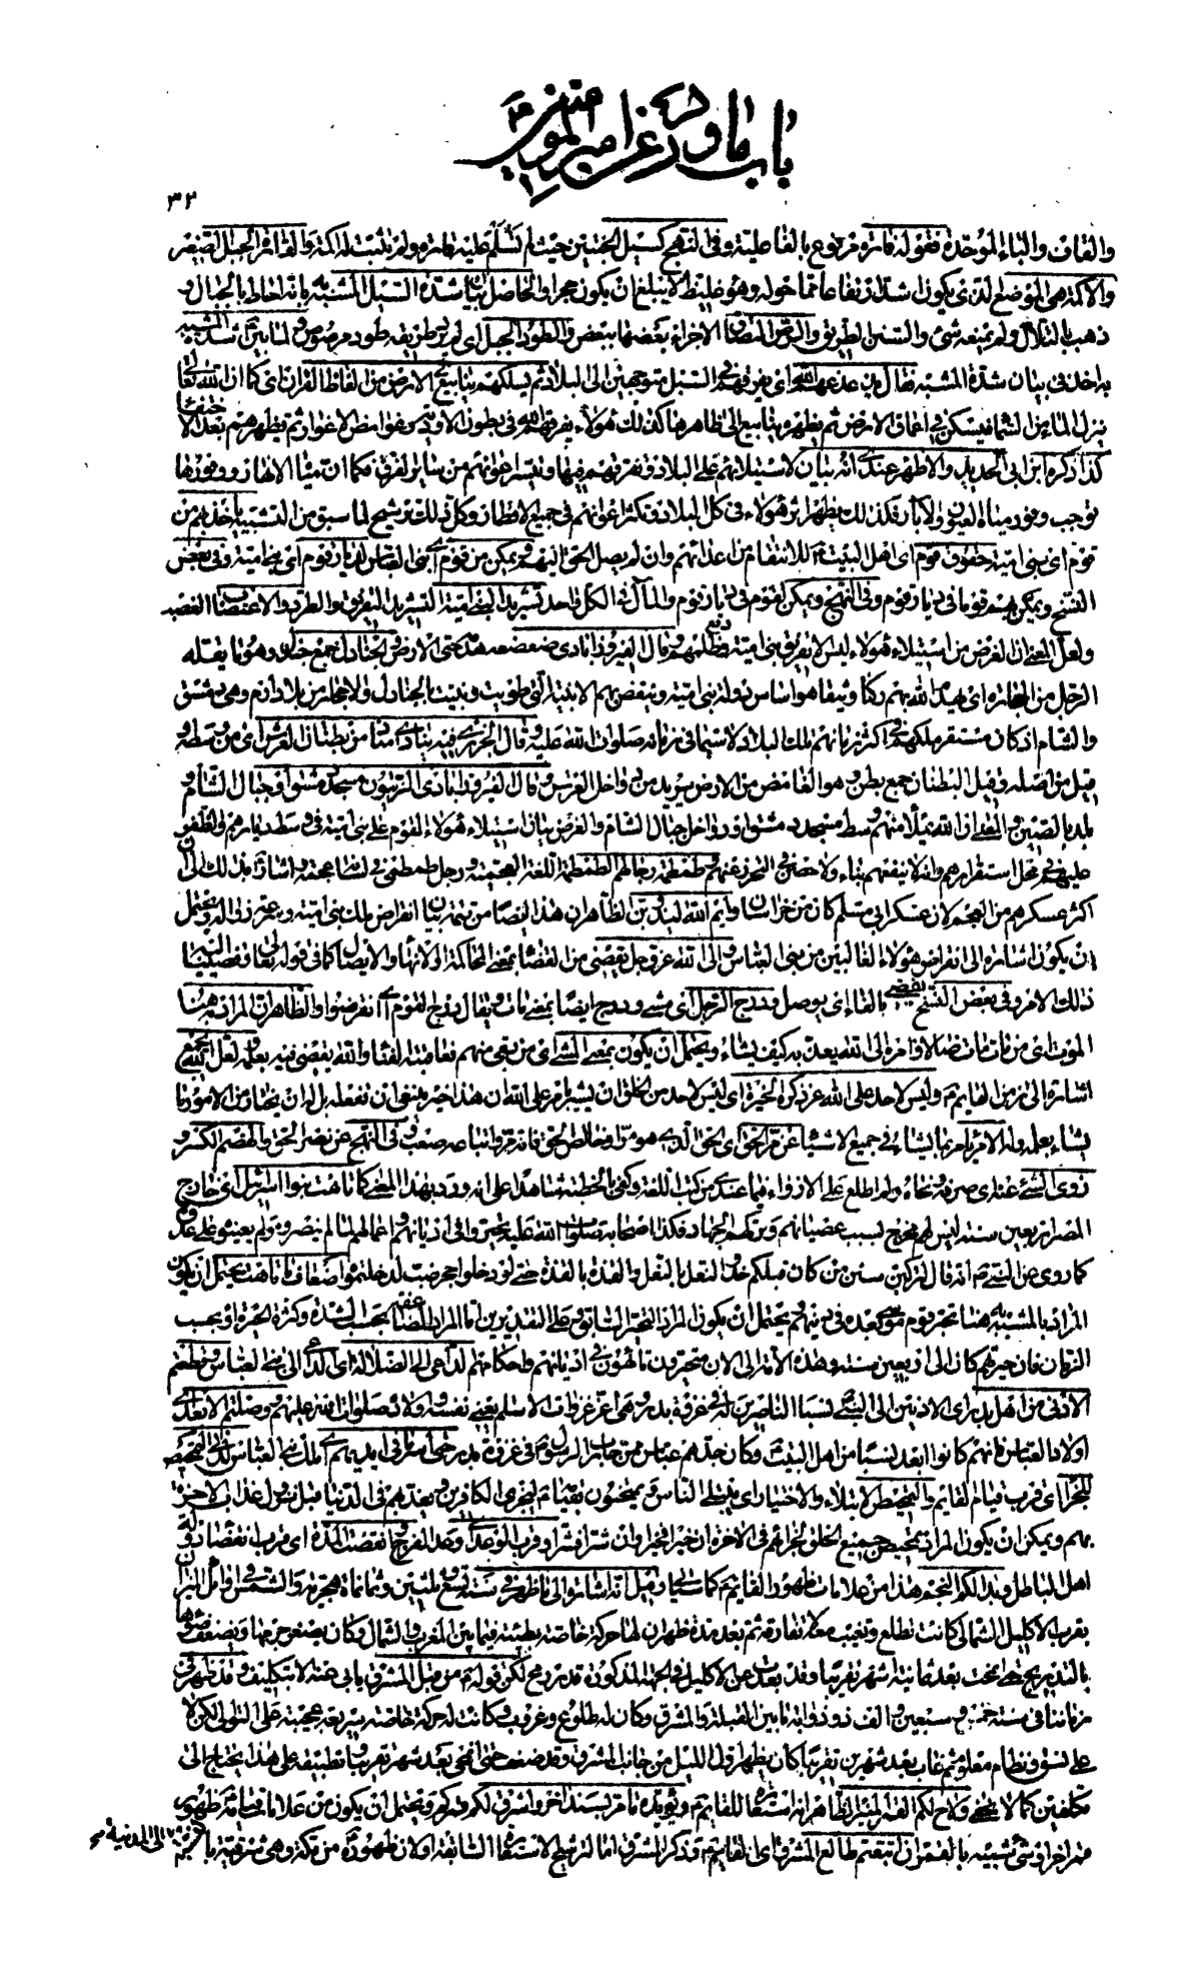 باب ما ورد عن امير المؤمنين
٣٢
والقاف والباء الموحدة فقوله قارة مرفوع بالفاعلية وفى النهج كسيل الجنتين حيث لم تسلم عليه قارة ولم تثبت له اكمة والقارة الجبل الصغير
والاكمة هى الموضع الذى يكون اشد ارتفاعا مما حوله وهو غليظ لا يبلغ ان يكون حجرا والحاصل بيان شدة السيل المشبه به بانه احاط بالجبال و
ذهب بالتلال ولم يمنعه شىء والسنن الطريق والرص التصاق الاجزاء بعضها ببعض والطود الجبل اى لم يرد طريقه طود مرصوص ولما بين شدة المشبه
به اخذ فى بيان شدة المشبه فقال يذعذعهم الله اى يفرقهم فى السبل متوجهين الى البلاد ثم يسلكهم ينابيع فى الارض من الفاظ القران اى كما ان الله تعالى
ينزل الماء من السماء فيسكن فى اعماق الارض ثم يظهره ينابيع الى ظاهرها كذلك هؤلاء يفرقهم الله فى بطون الاودية وغوامض الاغوار ثم يظهرهم بعد الاختفاء
كذا ذكره ابن ابى الحديد والاظهر عندى انه بيان لاستيلائهم على البلاد وتفرقهم فيها وتيسر اعوانهم من سائر الفرق فكما ان مياه الانهار ووفورها
توجب وفور مياه العيون والآبار فكذلك يظهر اثر هؤلاء فى كل البلاد وتكثر اعوانهم فى جميع الاقطار وكل ذلك ترشيح لما سبق من التشبيه ياخذ بهم من
قوم اى بنى امية حقوق قوم اى اهل البيت للانتقام من اعدائهم وان لم يصل الحق اليهم ويمكن من قوم اى بنى العباس لديار قوم اى بنى امية وفى بعض
النسخ ويمكن بهم قوما فى ديار قوم وفى النهج ويمكن لقوم فى ديار قوم والمآل فى الكل واحد تشريدا لبنى امية التشريد التفريق والطرد والاغتصاب الغصب
ولعل المعنى ان الغرض من استيلاء هؤلاء ليس الا تفريق بنى امية ودفع ظلمهم وقال الفيروزابادى ضعضعه هدمه حتى الارض والجنادل جمع جندل وهو ما يقله
الرجل من الحجارة اى يهدم الله بهم ركنا وثيقا هو اساس دولة بنى امية وينقض بهم الابنية التى طويت وبنيت بالجنادل والاحجار من بلاد ارم وهى دمشق
والشام اذ كان مستقر ملكهم فى اكثر زمانهم تلك البلاد لا سيما فى زمانه صلوات الله عليه وقال الجزرى فيه ينادى مناد من بطنان العرش اى من وسطه و
قيل من اصله وقيل البطنان جمع بطن وهو الغامض من الارض يريد من دواخل العرش وقال الفيروزابادى الزيتون مسجد دمشق او جبال الشام و
بلد بالصين والمعنى ان الله يملأ منهم وسط مسجد دمشق او دواخل جبال الشام والغرض بيان استيلاء هؤلاء القوم على بنى امية فى وسط ديارهم والظفر
عليهم فى محل استقرارهم وانه لا ينفعهم بناء ولا حصن فى التحرز عنهم وطمطمة رجالهم الطمطمة اللغة العجمية ورجل طمطمى فى لسانه عجمة واشار بذلك الى ان
اكثر عسكرهم من العجم لان عسكر ابى مسلم كان من خراسان وايم الله ليذوبن الظاهر ان هذا ايضا من تتمة بيان انقراض ملك بنى امية وسرعة زواله ويحتمل
ان يكون اشارة الى انقراض هؤلاء الغالبين من بنى العباس والى الله عز وجل يقضى من القضاء بمعنى المحاكمة او الانهاء والايصال كما فى قوله تعالى وقضينا اليه
ذلك الامر وفى بعض النسخ يفضى بالفاء اى يوصل ودرج الرجل اى مشى ودرج ايضا بمعنى مات ويقال درج القوم اى انقرضوا والظاهر ان المراد به هنا
الموت اى من مات مات ضالا وامره الى الله يعذبه كيف يشاء ويحتمل ان يكون بمعنى المشى اى من بقى منهم فعاقبته الفناء والله يقضى فيه بعلمه ولعل الله يجمع
اشارة الى زمن القائم وليس لاحد على الله عز ذكره الخيرة اى ليس لاحد من الخلق ان يشير بامر على الله ان هذا خير ينبغى ان تفعله بل له ان يختار من الامور ما
يشاء بعلمه وله الامر يامر بما يشاء فى جميع الاشياء عن مر الحق اى الحق الذى هو مر او خالص الحق فانه مر واتباعه صعب وفى النهج عن نصر الحق والهضم الكسر و
زوى الشىء عنه اى صرفه ونحاه ولم اطلع على الازواء فيما عندى من كتب اللغة وكفى بالخطبة شاهدا على انه ورد بهذا المعنى كما تاهت بنو اسرائيل اى خارج
المصر اربعين سنة ليس لهم مخرج بسبب عصيانهم وتركهم الجهاد فكذا اصحابه صلوات الله عليه تحيروا فى اديانهم واعمالهم لما لم ينصروه ولم يعينوه على عدوه
كما روى عن النبى انه قال لتركبن سنن من كان قبلكم حذو النعل بالنعل والقذة بالقذة حتى لو دخلوا جحر ضب لدخلتموه اضعاف ما تاهت يحتمل ان يكون
المراد بالمشبه به هنا تحير قوم موسى بعده فى دينهم ويحتمل ان يكون المراد التحير السابق وعلى التقديرين اما المراد المضاعفة بحسب الشدة وكثرة الحيرة او بحسب
الزمان فان حيرتهم كان الى اربعين سنة وهذه الامة الى الان متحيرون تائهون فى اديانهم واحكامهم الداعى الى الضلالة اى الداعى الى بنى العباس وقطعتم
الادنى من اهل بدر اى الادنين الى النبى نسبا الناصرين له فى غزوة بدر وهى اعز غزوات الاسلم يعنى نفسه واولاده صلوات الله عليهم ووصلتم الابعد اى
اولاد العباس فانهم كانوا ابعد نسبا من اهل البيت وكان جدهم عباس ممن حارب الرسول فى غزوة بدر حتى اسر ما فى ايديهم اى ملك بنى العباس لدنا التمحيص
للجزاء اى قرب قيام القايم والتمحيص الابتلاء والاختبار اى يبتلى الناس ويمتحنون بقيامه ليجزى الكافرين ويعذبهم فى الدنيا قبل نزول عذاب الاخرة
بهم ويمكن ان يكون المراد تمحيص جميع الخلق لجزائهم فى الاخرة ان خيرا فخيرا وان شرا فشرا وقرب الوعد اى وعد الفرج وانقضت المدة اى قرب انقضاء دولة
اهل الباطل وبدا لكم النجم هذا من علامات ظهور القايم كما سيأتى وقيل انه اشارة الى ما ظهر فى سنة تسع وثلثين وثمانمائة هجرية والشمس فى اوائل الميزان
بقرب الاكليل الشمالى كانت تطلع وتغيب معه لا تفارقه ثم بعد مدة ظهر ان لها حركة خاصة بطيئة فيما بين المغرب والشمال وكان يصغر جرمها ويضعف ضوءها
بالتدريج حتى انمحت بعد ثمانية اشهر تقريبا وقد بعدت عن الاكليل فى الجهة المذكورة قدر رمح لكن قوله من قبل المشرق يأبى عنه الا بتكليف وقد ظهر فى
زماننا فى سنة خمس وسبعين والف ذو ذوابة ما بين القبلة والمشرق وكان له طلوع وغروب وكانت له حركة خاصة سريعة عجيبة على التوالى لكن لا
على نسق ونظام معلوم ثم غاب بعد شهرين تقريبا كان يظهر اول الليل من جانب المشرق وقد ضعف حتى انمحى بعد شهر تقريبا وتطبيقه على هذا يحتاج الى
تكلفين كما لا يخفى ولاح لكم القمر المنير الظاهر انه استعارة للقايم ويؤيده ما مر بسند اخر واشرق لكم قمركم ويحتمل ان يكون من علامات قيامه ظهور
قمر اخر او شىء شبيه بالقمر ان تبعتم طالع المشرق اى القايم وذكر المشرق اما لترشيح الاستعارة السابقة او لان ظهوره من مكة وهى شرقية بالنسبة الى المدينة